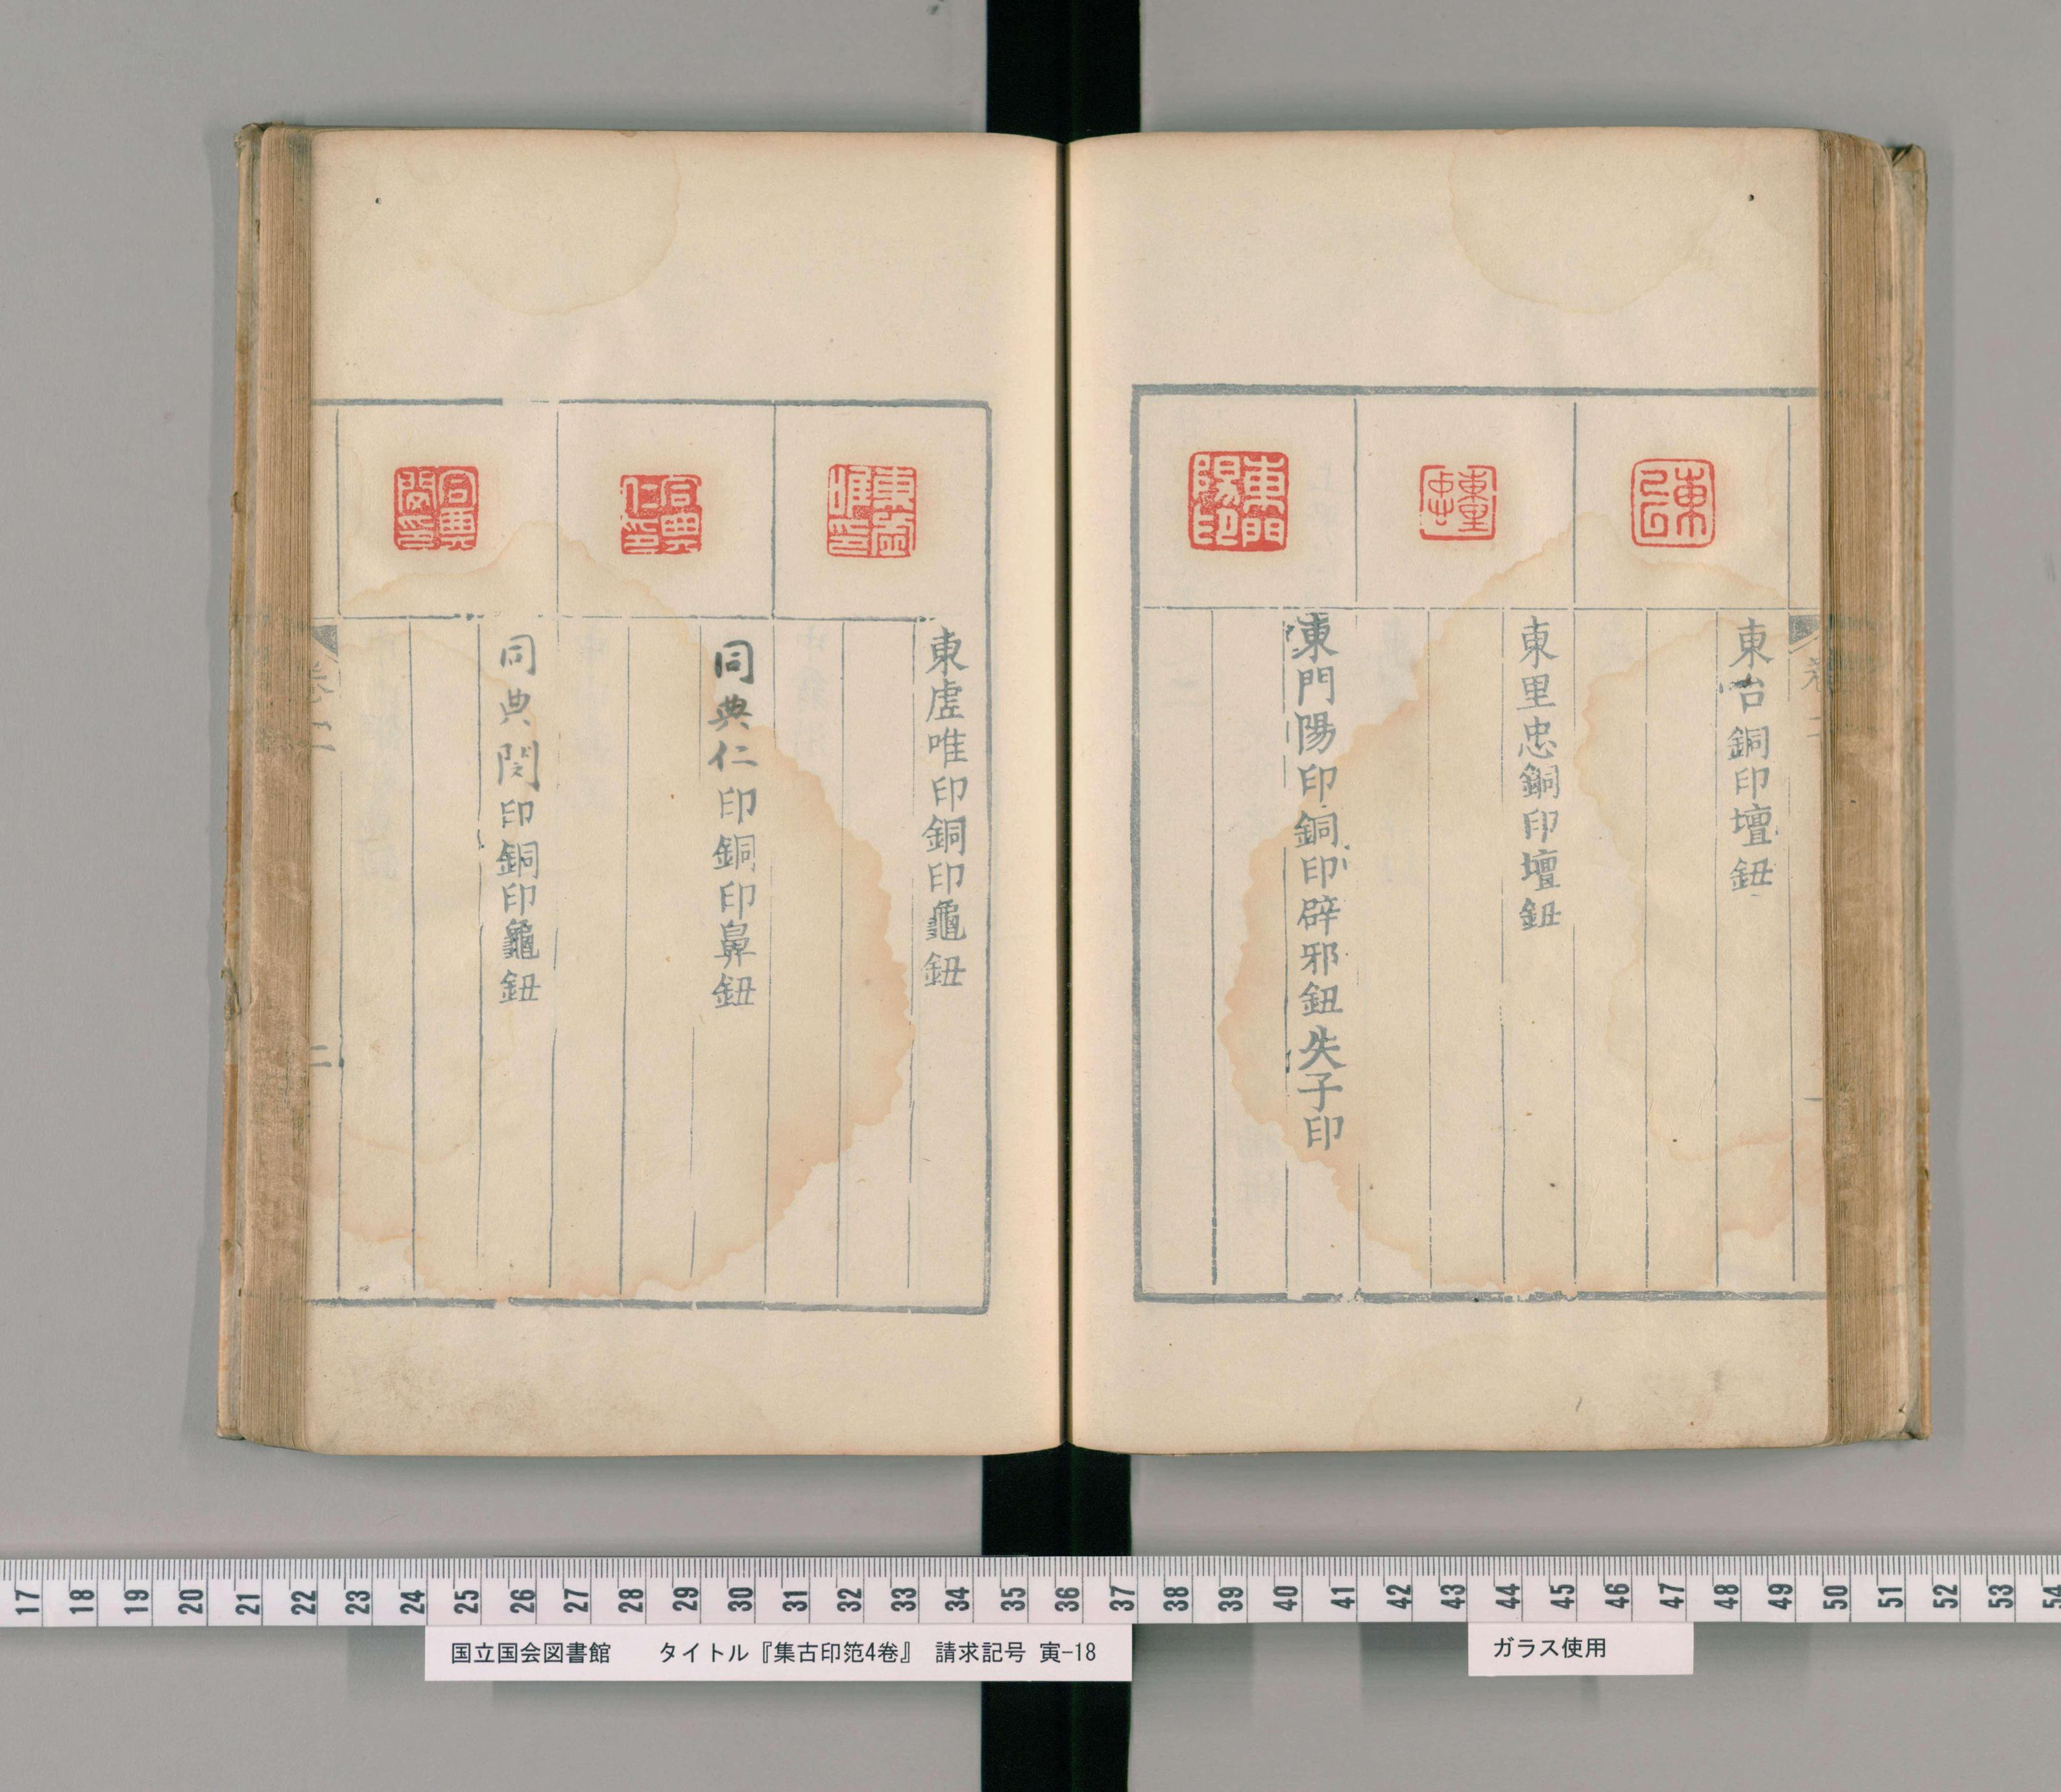 東台銅印壇鈕
東里忠銅印壇鈕
東門陽印銅印辟邪鈕失子印
東虛唯印銅印龜鈕
同典仁印銅印鼻鈕
同典閔印銅印龜鈕
卷二
二
17 18 19 20 21 22 23 24 25 26 27 28 29 30 31 32 33 34 35 36 37 38 39 40 41 42 43 44 45 46 47 48 49 50 51 52 53 54
国立国会図書館 タイトル『集古印笵4巻』 請求記号 寅-18
ガラス使用